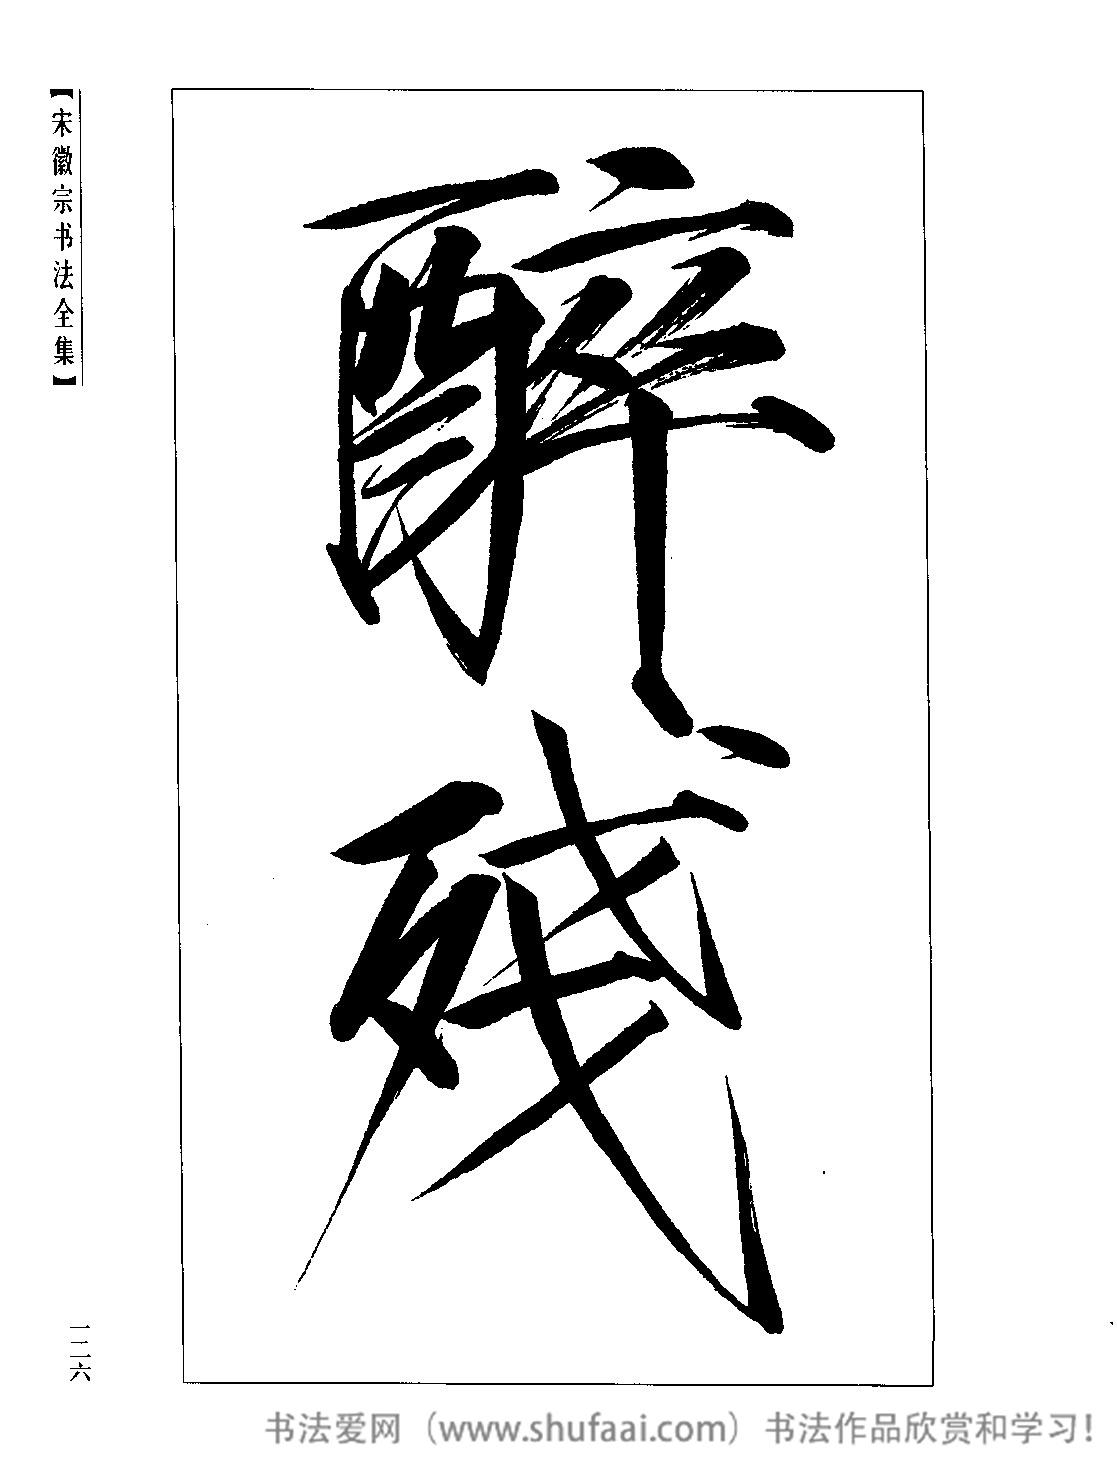 【宋徽宗书法全集】
醉
殘
一二六
书法爱网（www.shufaai.com）书法作品欣赏和学习！